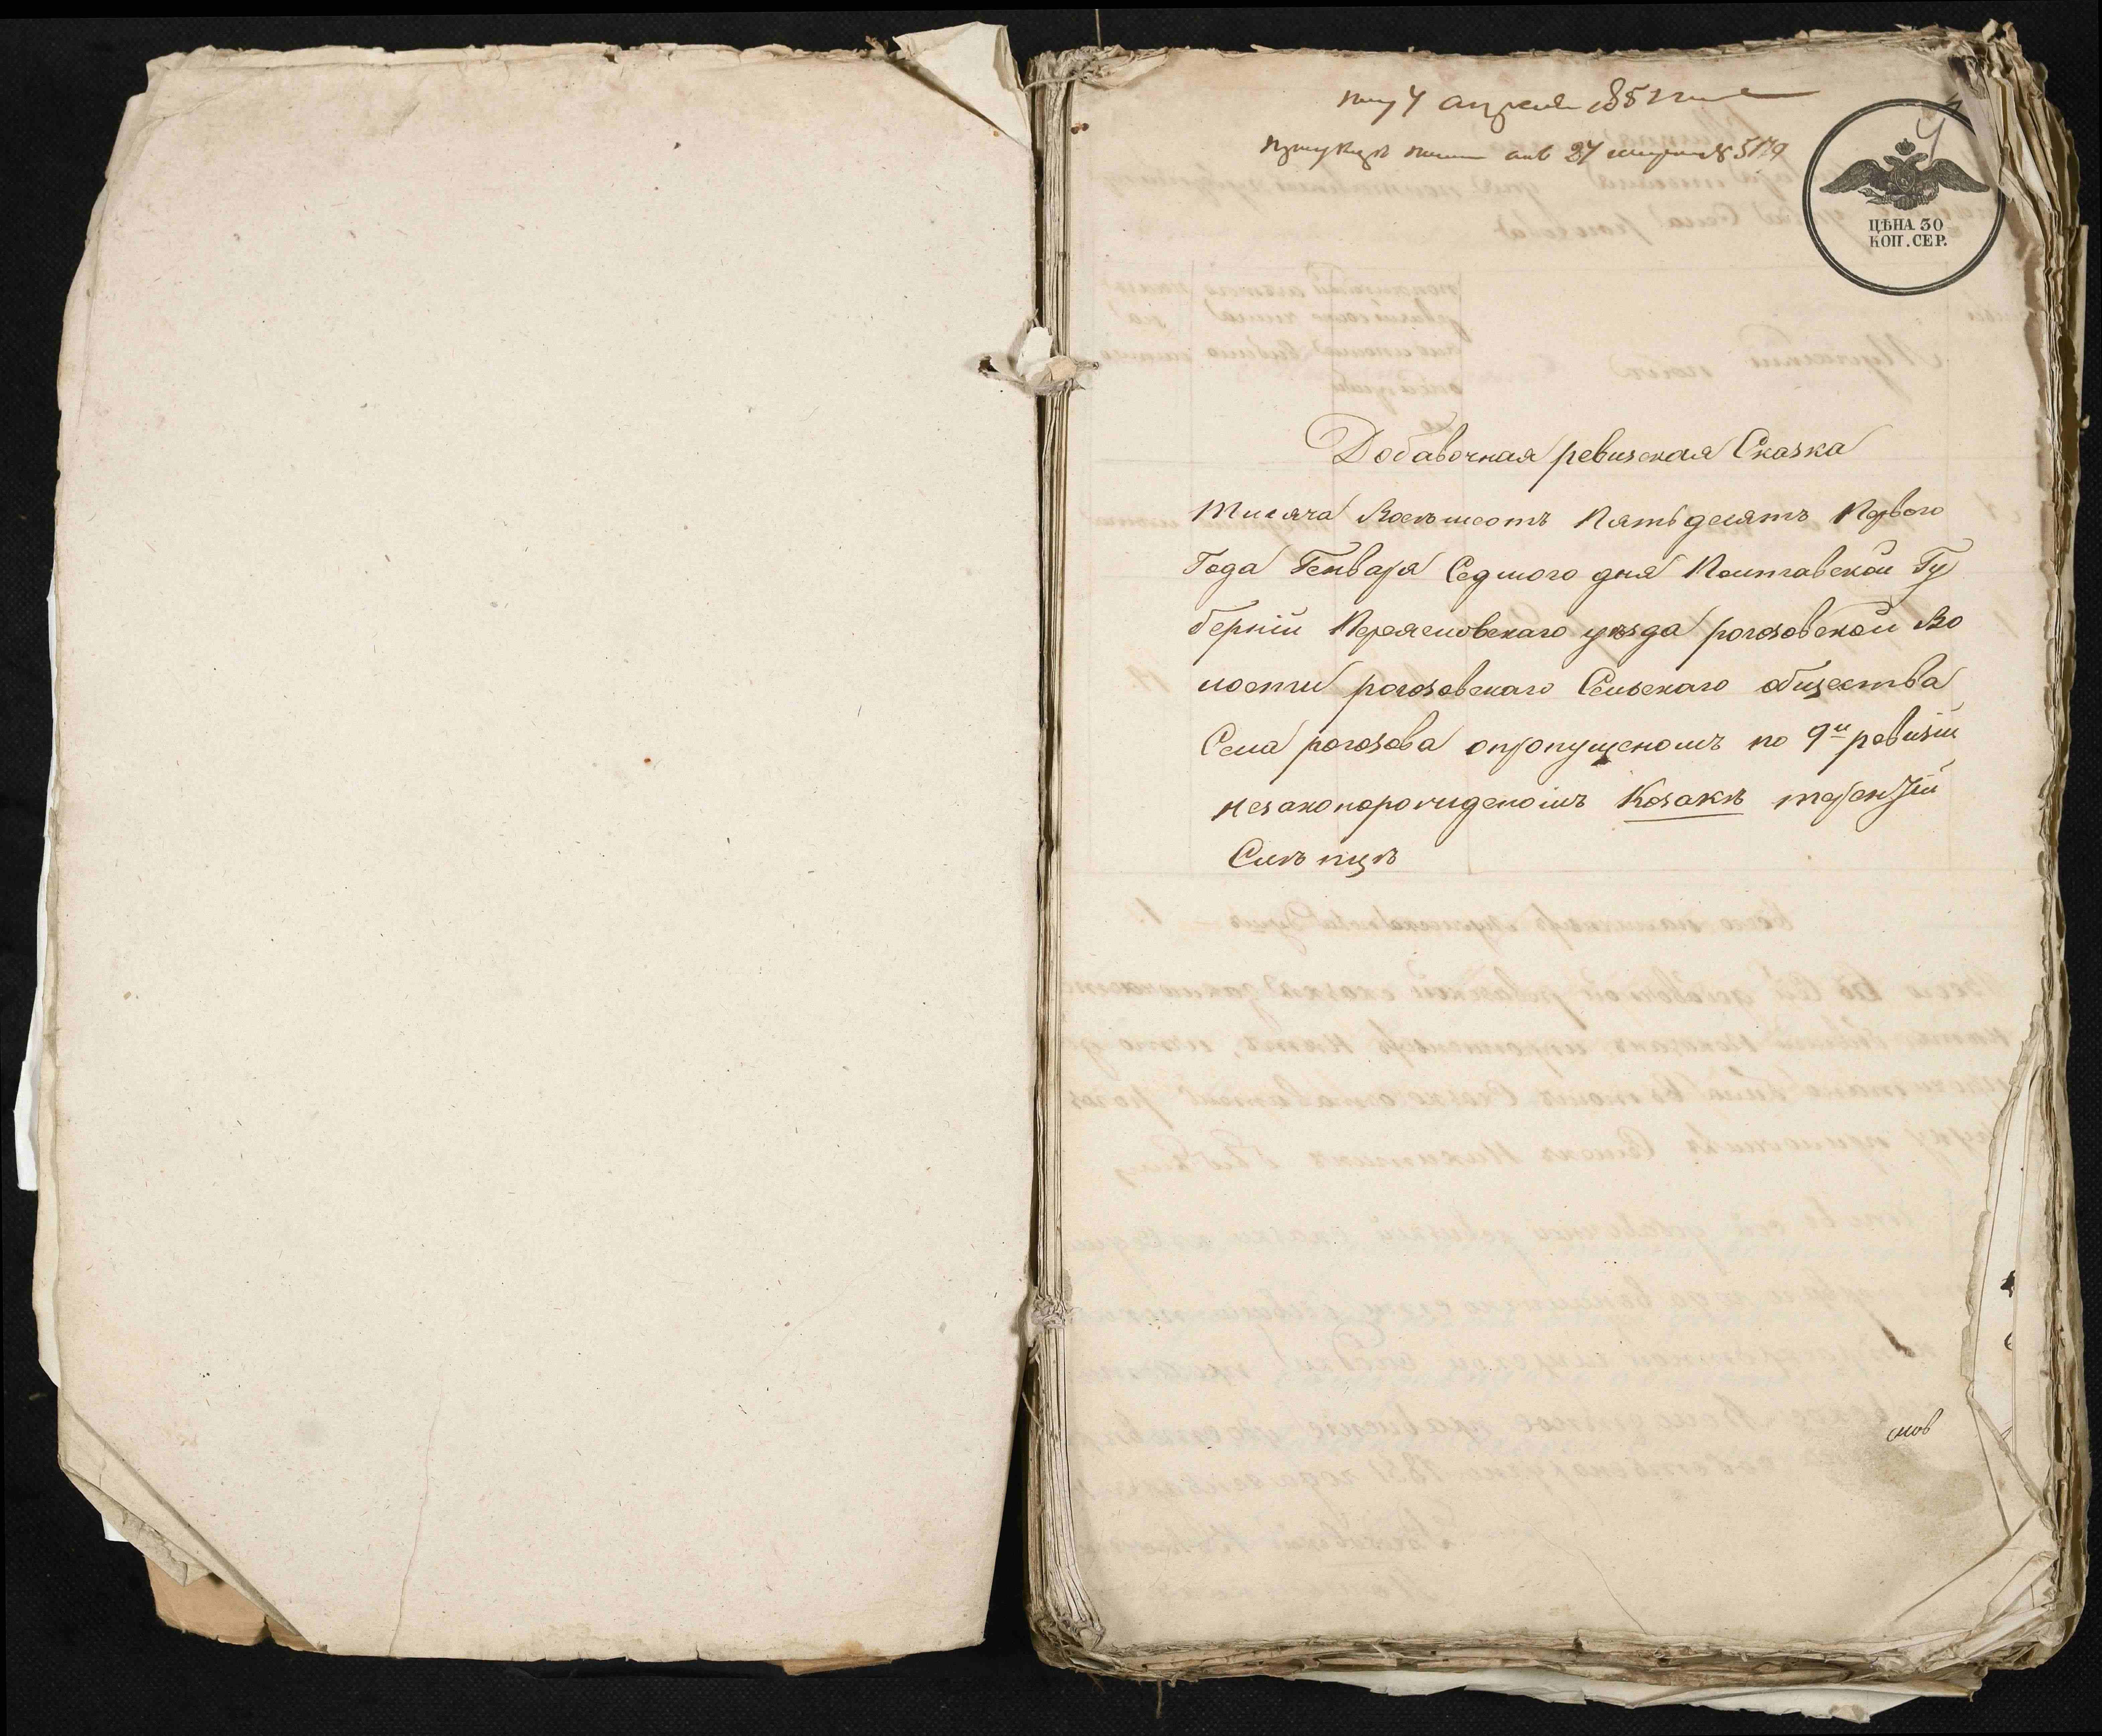 4 апреля 1851
4
ЦѢНА 30
КОП. СЕР.
Добавочная ревизская Сказка
тисяча Восѣмсотъ Пятьдесятъ Первого
Года Генваря Седмого дня Полтавской Гу
берніи Переяславского уѣзда рогозовской Во
лости рогозовскаго Сельскаго общества
Села рогозова опропущеномъ по 9й ревизіи
незаконорожденомъ Козакѣ терентіи
Слѣпцѣ